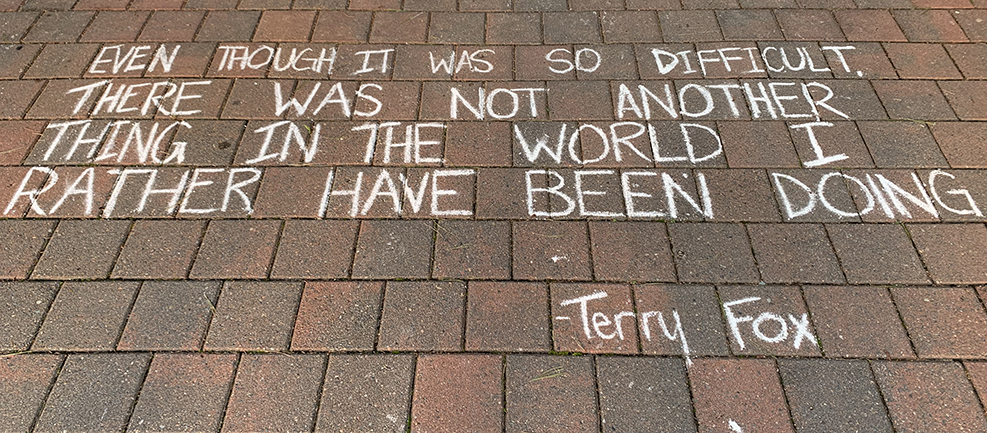 EVEN THOUGH IT WAS SO DIFFICULT.
THERE WAS NOT ANOTHER
THING IN THE WORLD I
RATHER HAVE BEEN DOING
-Terry Fox